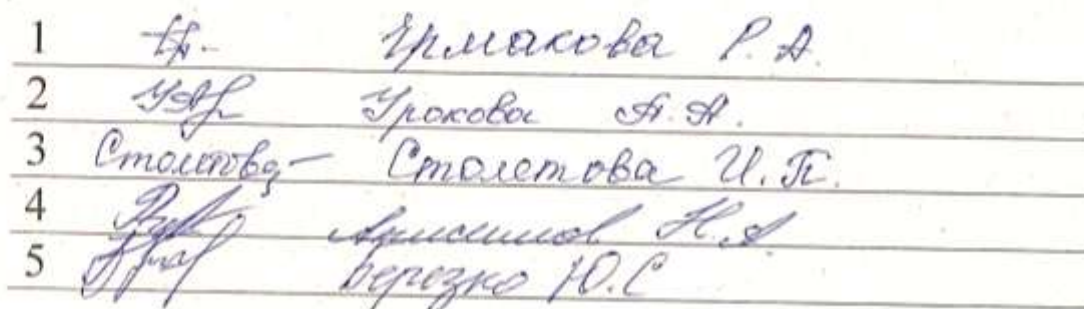 1 Ермакова Р. А.
2 Урокова А. А.
3 Столетова – Столетова И. П.
4 Анисимов Н. А
5 Березко Ю. С